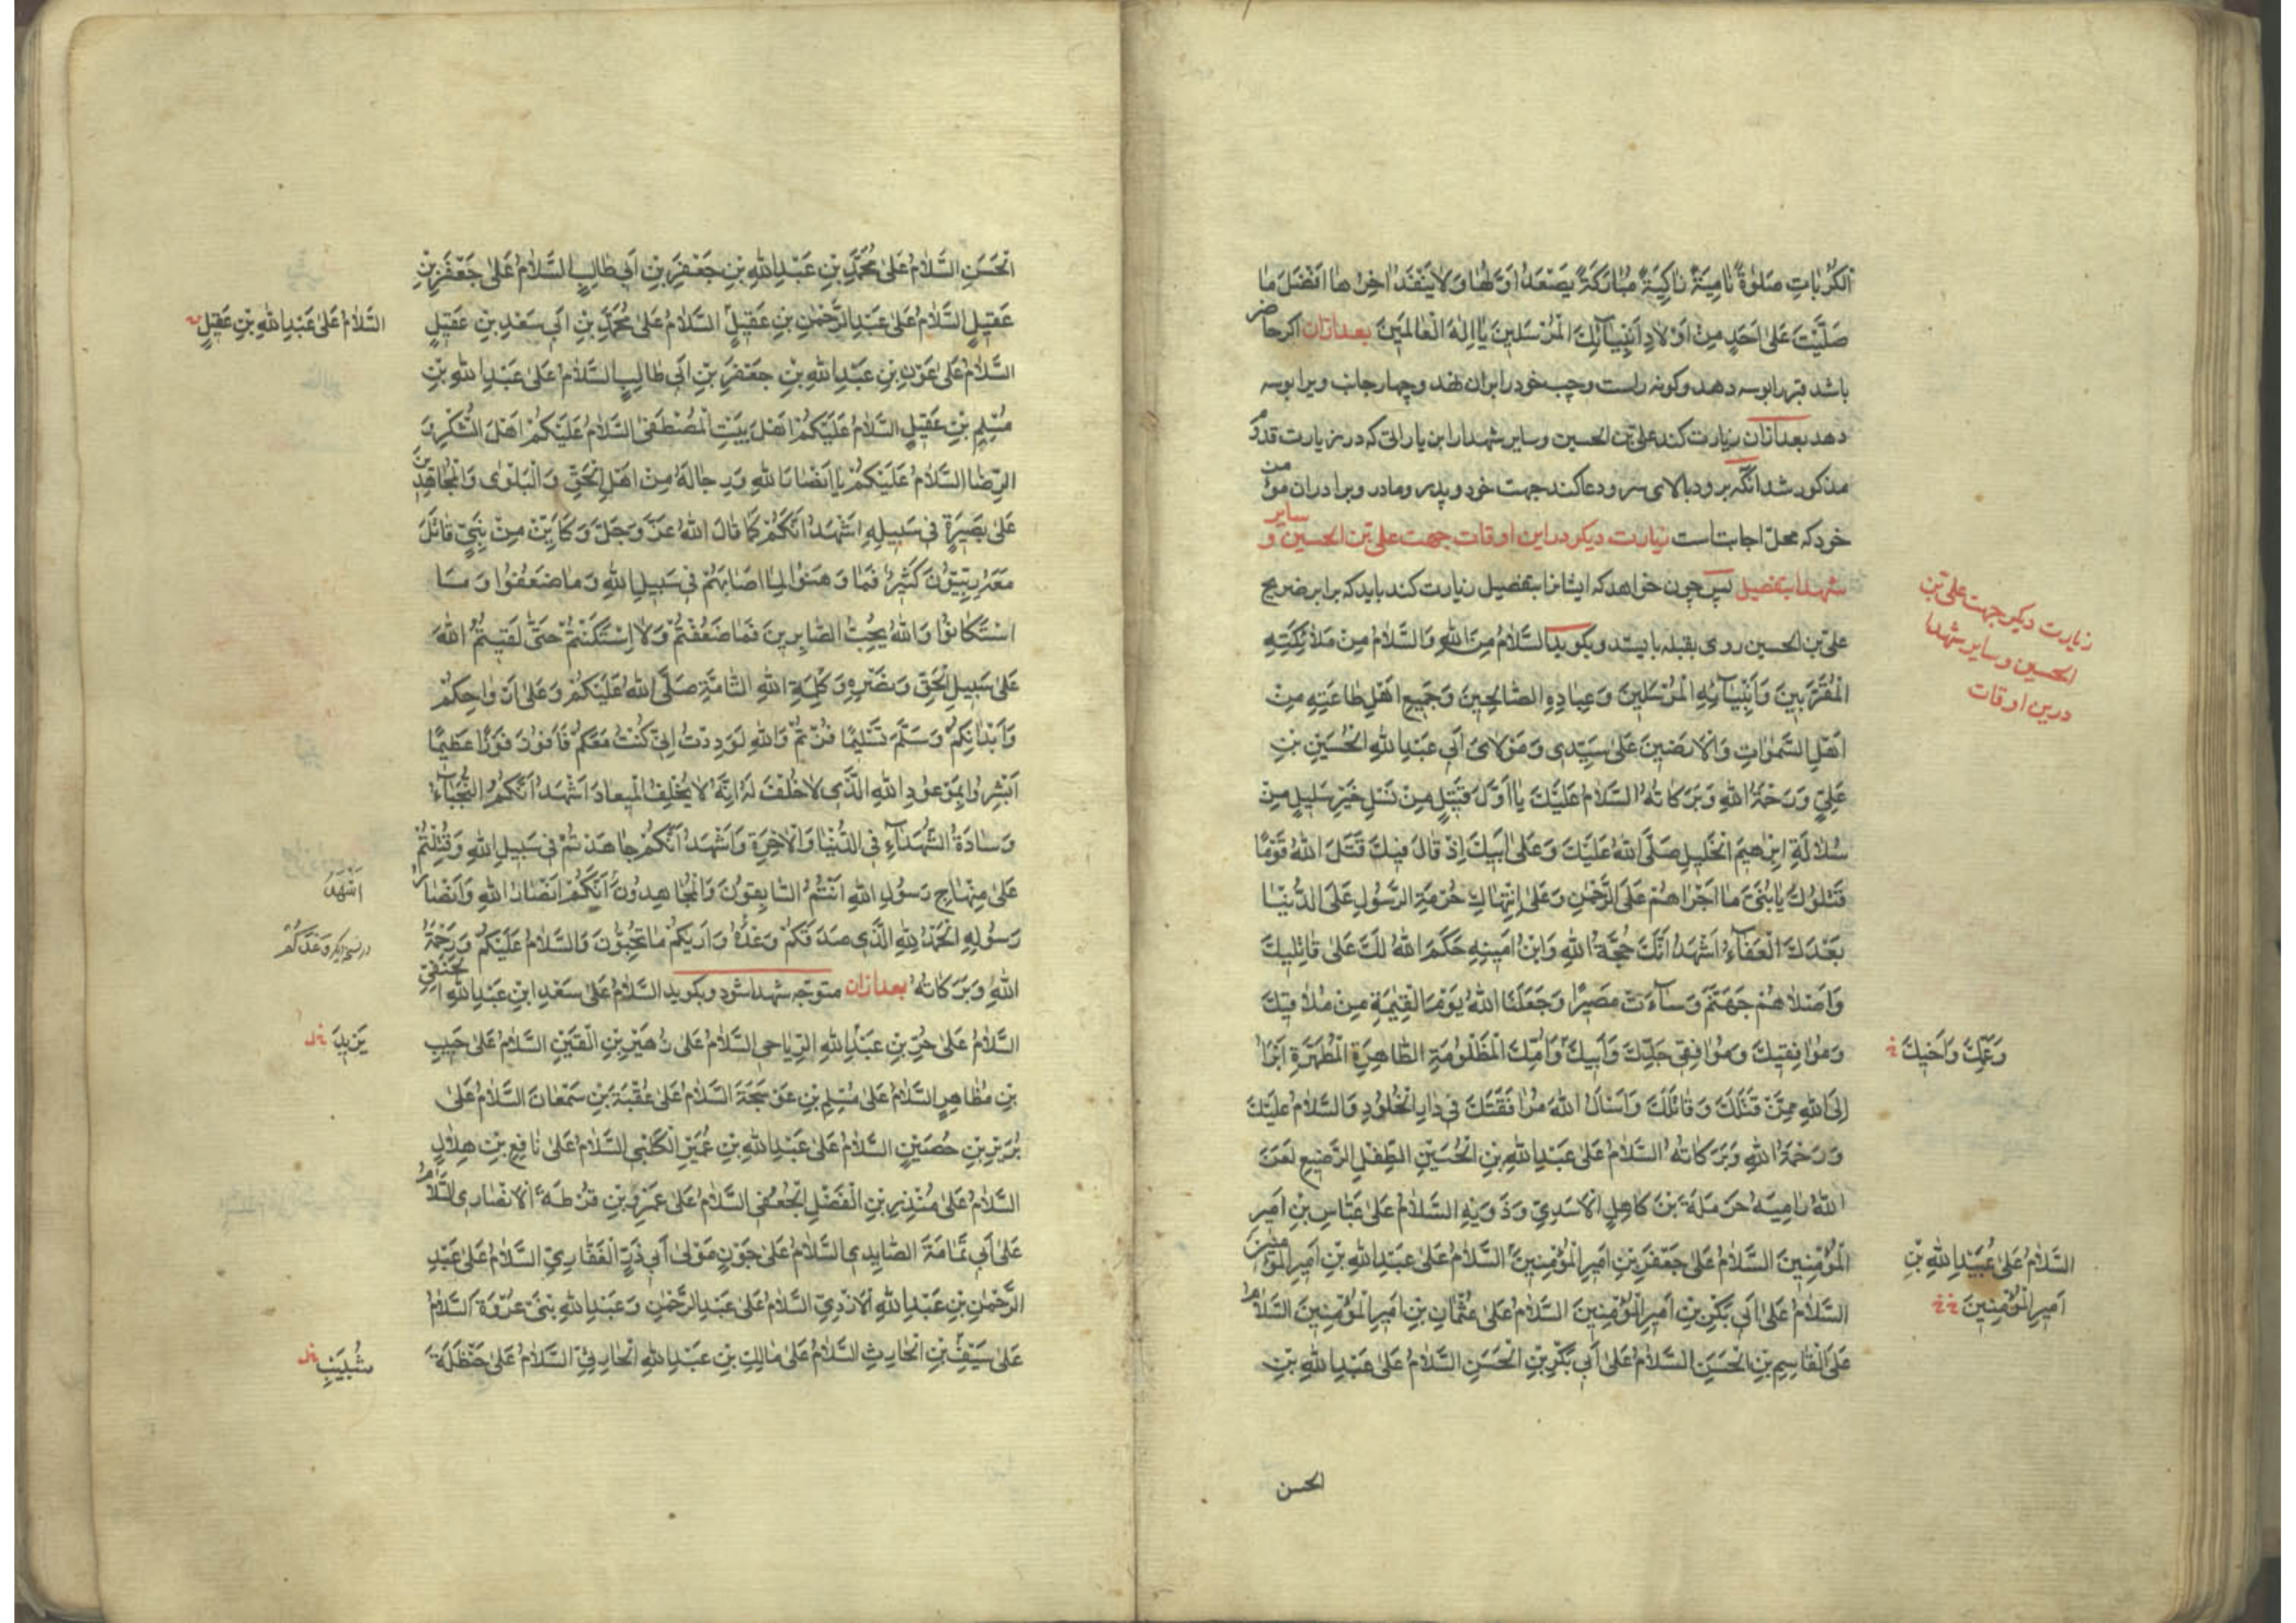 الكُرُبَاتِ صَلٰوةً نَامِيَةً زَاكِيَةً مُبَارَكَةً يَصْعَدُ اَوَّلُهَا وَلَا يَنْفَدُ اٰخِرُهَا اَفْضَلَ مَا
صَلَّيْتَ عَلىٰ اَحَدٍ مِنْ اَوْلَادِ اَنْبِيَآئِكَ الْمُرْسَلِينَ يَا اِلٰهَ الْعَالَمِينَ بعدازان اكر حاضر
باشد قبر را بوسه دهد وكونه راست و چپ خود را بران نهد و چهار جانب ويرا بوسه
دهد بعدازان زيارت كند على بن الحسين و ساير شهدا را بزياراتى كه در زيارت
مذكور شد انكه برود بالاى سر و دعا كند جهت خود و پدر و مادر و برادران مؤمن
خود كه محل اجابت است زيارت ديكر در اين اوقات جهت على بن الحسين و ساير
شهدا بتفصيل پس چون خواهد كه ايشانرا بتفصيل زيارت كند بايد كه برابر ضريح
على بن الحسين روى بقبله بايستد و بكويد السَّلَامُ مِنَ اللهِ وَالسَّلَامُ مِنْ مَلَائِكَتِهِ
الْمُقَرَّبِينَ وَاَنْبِيَآئِهِ الْمُرْسَلِينَ وَعِبَادِهِ الصَّالِحِينَ وَجَمِيعِ اَهْلِ طَاعَتِهِ مِنْ
اَهْلِ السَّمٰوَاتِ وَالْاَرَضِينَ عَلىٰ سَيِّدِى وَمَوْلَاىَ اَبِى عَبْدِ اللهِ الْحُسَيْنِ بْنِ
عَلِيٍّ وَرَحْمَةُ اللهِ وَبَرَكَاتُهُ السَّلَامُ عَلَيْكَ يَا اَوَّلَ قَتِيلٍ مِنْ نَسْلِ خَيْرِ سَلِيلٍ مِنْ
سُلَالَةِ اِبْرٰهِيمَ الْخَلِيلِ صَلَّى اللهُ عَلَيْكَ وَعَلىٰ اَبِيكَ اِذْ قَالَ فِيكَ قَتَلَ اللهُ قَوْمًا
قَتَلُوكَ يَا بُنَىَّ مَا اَجْرَاَهُمْ عَلَى الرَّحْمٰنِ وَعَلىٰ اِنْتِهَاكِ حُرْمَةِ الرَّسُولِ عَلَى الدُّنْيَا
بَعْدَكَ الْعَفَآءُ اَشْهَدُ اَنَّكَ حُجَّةُ اللهِ وَابْنُ اَمِينِهِ حَكَمَ اللهُ لَكَ عَلىٰ قَاتِلِيكَ
وَاَصْلَاهُمْ جَهَنَّمَ وَسَآءَتْ مَصِيرًا وَجَعَلَنَا اللهُ يَوْمَ الْقِيٰمَةِ مِنْ مُلَاقِيكَ
وَمُرَافِقِيكَ وَمُرَافِقِى جَدِّكَ وَاَبِيكَ وَاُمِّكَ الْمَظْلُومَةِ الطَّاهِرَةِ الْمُطَهَّرَةِ اَبْرَأُ
اِلَى اللهِ مِمَّنْ قَتَلَكَ وَقَاتَلَكَ وَاَسْئَلُ اللهَ مُرَافَقَتَكَ فِى دَارِ الْخُلُودِ وَالسَّلَامُ عَلَيْكَ
وَرَحْمَةُ اللهِ وَبَرَكَاتُهُ السَّلَامُ عَلىٰ عَبْدِ اللهِ بْنِ الْحُسَيْنِ الطِّفْلِ الرَّضِيعِ لَعَنَ
اللهُ رَامِيَهُ حَرْمَلَةَ بْنَ كَاهِلٍ الْاَسَدِيِّ وَذَوِيهِ السَّلَامُ عَلىٰ عَبَّاسِ بْنِ اَمِيرِ
الْمُؤْمِنِينَ السَّلَامُ عَلىٰ جَعْفَرِ بْنِ اَمِيرِ الْمُؤْمِنِينَ السَّلَامُ عَلىٰ عَبْدِ اللهِ بْنِ اَمِيرِ الْمُؤْمِنِينَ
السَّلَامُ عَلىٰ اَبِى بَكْرِ بْنِ اَمِيرِ الْمُؤْمِنِينَ السَّلَامُ عَلىٰ عُثْمَانَ بْنِ اَمِيرِ الْمُؤْمِنِينَ السَّلَامُ
عَلَى الْقَاسِمِ بْنِ الْحَسَنِ السَّلَامُ عَلىٰ اَبِى بَكْرِ بْنِ الْحَسَنِ السَّلَامُ عَلىٰ عَبْدِ اللهِ بْنِ
الحسن
زيارت ديكر جهت على بن
الحسين و ساير شهدا
درين اوقات
وَعَمِّكَ وَاَخِيكَ
السَّلَامُ عَلىٰ عُبَيْدِ اللهِ بْنِ
اَمِيرِ الْمُؤْمِنِينَ
الْحَسَنِ السَّلَامُ عَلىٰ مُحَمَّدِ بْنِ عَبْدِ اللهِ بْنِ جَعْفَرِ بْنِ اَبِى طَالِبٍ السَّلَامُ عَلىٰ جَعْفَرِ بْنِ
عَقِيلٍ السَّلَامُ عَلىٰ عَبْدِ الرَّحْمٰنِ بْنِ عَقِيلٍ السَّلَامُ عَلىٰ مُحَمَّدِ بْنِ اَبِى سَعْدِ بْنِ عَقِيلٍ
السَّلَامُ عَلىٰ عَوْنِ بْنِ عَبْدِ اللهِ بْنِ جَعْفَرِ بْنِ اَبِى طَالِبٍ السَّلَامُ عَلىٰ عَبْدِ اللهِ بْنِ
مُسْلِمِ بْنِ عَقِيلٍ السَّلَامُ عَلَيْكُمْ اَهْلَ بَيْتِ الْمُصْطَفىٰ السَّلَامُ عَلَيْكُمْ اَهْلَ الشُّكْرِ وَ
الرِّضَا السَّلَامُ عَلَيْكُمْ يَا اَنْصَارَ اللهِ وَرِجَالَهُ مِنْ اَهْلِ الْحَقِّ وَالْبَلْوٰى وَالْمُجَاهِدِينَ
عَلىٰ بَصِيرَةٍ فِى سَبِيلِهِ اَشْهَدُ اَنَّكُمْ كَمَا قَالَ اللهُ عَزَّ وَجَلَّ وَكَاَيِّنْ مِنْ نَبِيٍّ قَاتَلَ
مَعَهُ رِبِّيُّونَ كَثِيرٌ فَمَا وَهَنُوا لِمَا اَصَابَهُمْ فِى سَبِيلِ اللهِ وَمَا ضَعُفُوا وَمَا
اسْتَكَانُوا وَاللهُ يُحِبُّ الصَّابِرِينَ فَمَا ضَعُفْتُمْ وَلَا اِسْتَكَنْتُمْ حَتّٰى لَقِيتُمُ اللهَ
عَلىٰ سَبِيلِ الْحَقِّ وَنَصْرِهِ وَكَلِمَةِ اللهِ التَّامَّةِ صَلَّى اللهُ عَلَيْكُمْ وَعَلىٰ اَرْوَاحِكُمْ
وَاَبْدَانِكُمْ وَسَلَّمَ تَسْلِيمًا فُزْتُمْ وَاللهِ لَوَدِدْتُ اِنِّى كُنْتُ مَعَكُمْ فَاَفُوزَ فَوْزًا عَظِيمًا
اَبْشِرُوا بِمَوْعُودِ اللهِ الَّذِى لَا خُلْفَ لَهُ اِنَّهُ لَا يُخْلِفُ الْمِيعَادَ اَشْهَدُ اَنَّكُمُ النُّجَبَآءُ
وَسَادَةُ الشُّهَدَآءِ فِى الدُّنْيَا وَالْاٰخِرَةِ وَاَشْهَدُ اَنَّكُمْ جَاهَدْتُمْ فِى سَبِيلِ اللهِ وَقُتِلْتُمْ
عَلىٰ مِنْهَاجِ رَسُولِ اللهِ اَنْتُمُ السَّابِقُونَ وَالْمُجَاهِدُونَ اَنَّكُمْ اَنْصَارُ اللهِ وَاَنْصَارُ
رَسُولِهِ الْحَمْدُ لِلهِ الَّذِى صَدَقَكُمْ وَعْدَهُ وَاَرٰيكُمْ مَا تُحِبُّونَ وَالسَّلَامُ عَلَيْكُمْ وَرَحْمَةُ
اللهِ وَبَرَكَاتُهُ بعدازان متوجه شهدا شود و بكويد السَّلَامُ عَلىٰ سَعْدِ ابْنِ عَبْدِ اللهِ الْحَنَفِيِّ
السَّلَامُ عَلىٰ حُرِّ بْنِ عَبْدِ اللهِ الرِّيَاحِى السَّلَامُ عَلىٰ زُهَيْرِ بْنِ الْقَيْنِ السَّلَامُ عَلىٰ حَبِيبِ
بْنِ مُظَاهِرٍ السَّلَامُ عَلىٰ مُسْلِمِ بْنِ عَوْسَجَةَ السَّلَامُ عَلىٰ عُقْبَةَ بْنِ سَمْعَانَ السَّلَامُ عَلىٰ
بُرَيْرِ بْنِ حُصَيْنٍ السَّلَامُ عَلىٰ عَبْدِ اللهِ بْنِ عُمَيْرٍ الْكَلْبِى السَّلَامُ عَلىٰ نَافِعِ بْنِ هِلَالٍ
السَّلَامُ عَلىٰ مُنْذِرِ بْنِ الْفَضْلِ الْجُعْفِى السَّلَامُ عَلىٰ عَمْرِو بْنِ قُرْطَةَ الْاَنْصَارِى السَّلَامُ
عَلىٰ اَبِى ثُمَامَةَ الصَّايِدِى السَّلَامُ عَلىٰ جَوْنٍ مَوْلىٰ اَبِى ذَرٍّ الْغَفَّارِيِّ السَّلَامُ عَلىٰ عَبْدِ
الرَّحْمٰنِ بْنِ عَبْدِ اللهِ الْاَزْدِيِّ السَّلَامُ عَلىٰ عَبْدِ الرَّحْمٰنِ وَعَبْدِ اللهِ بْنَىْ عُرْوَةَ السَّلَامُ
عَلىٰ سَيْفِ بْنِ الْحَارِثِ السَّلَامُ عَلىٰ مَالِكِ بْنِ عَبْدِ اللهِ الْحَارِثِيِّ السَّلَامُ عَلىٰ حَنْظَلَةَ
السَّلَامُ عَلىٰ عَبْدِ اللهِ بْنِ عَقِيلٍ
اَشْهَدُ
وَعْدَكُمْ
يَزِيدَ
شُبَيْبِ